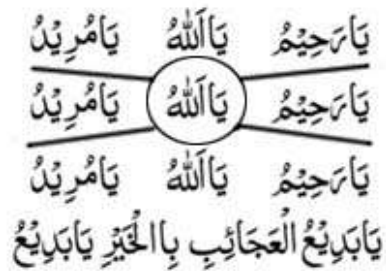 يَارَحِيْمُ يَااَللّٰهُ يَامُرِيْدُ
يَارَحِيْمُ يَااَللّٰهُ يَامُرِيْدُ
يَارَحِيْمُ يَااَللّٰهُ يَامُرِيْدُ
يَابَدِيْعُ الْعَجَائِبِ بِاالْخَيْرِ يَابَدِيْعُ